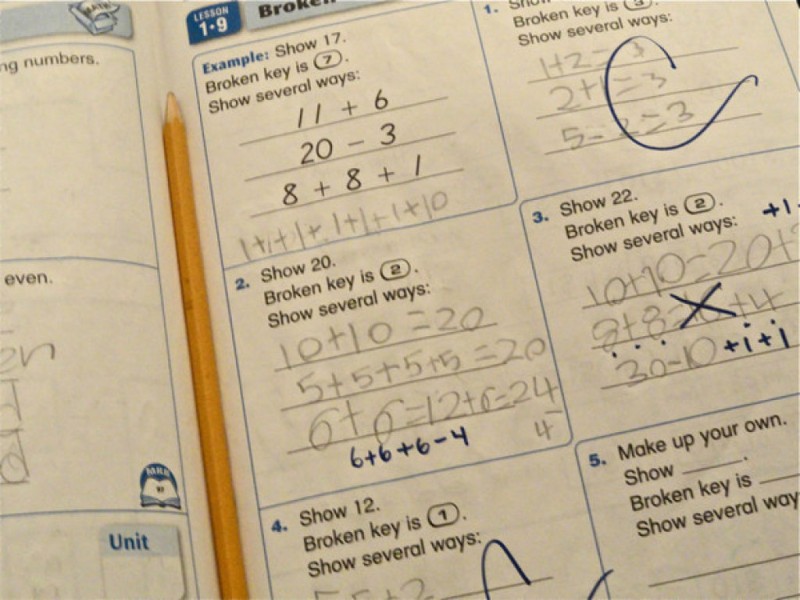 ng numbers.
even.
MRB
Unit
LESSON
1•9
Broken
Example: Show 17.
Broken key is 7.
Show several ways:
11 + 6
20 - 3
8 + 8 + 1
1+1+1+1+1+1+1+10
2. Show 20.
Broken key is 2.
Show several ways:
10+10=20
5+5+5+5=20
6+6=12+6=24
4
6+6+6-4
4. Show 12.
Broken key is 1.
Show several ways:
1. Show
Broken key is 3.
Show several ways:
1+2=3
2+1=3
5-2=3
3. Show 22.
Broken key is 2.
Show several ways:
+1
10+10=20+
8+8= +4
30-10+1+1
5. Make up your own.
Show ______.
Broken key is
Show several way